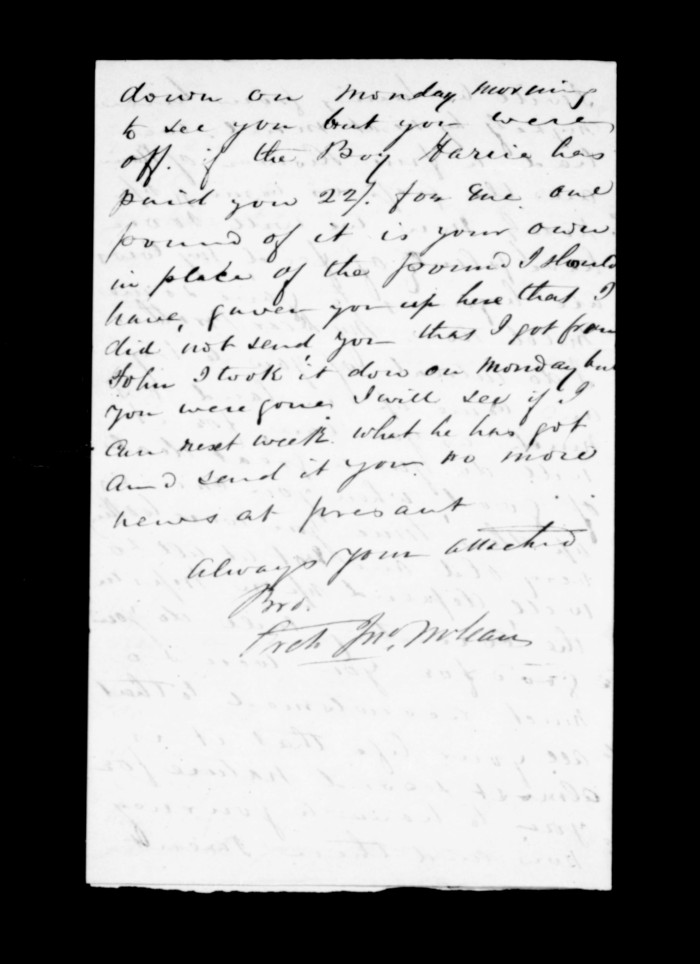 down on monday morning
to see you but you were
off. if the Boy Harrie has
paid you 22/. for me. one
pound of it is your own
in place of the pound I should
have, given you up here that I
did not send you that I got from
John I took it down on monday but
you were gone, I will see if I
can next week. what he has got
and send it you no more
news at presant
always your attached
Bro.
Arch Jno. McLean